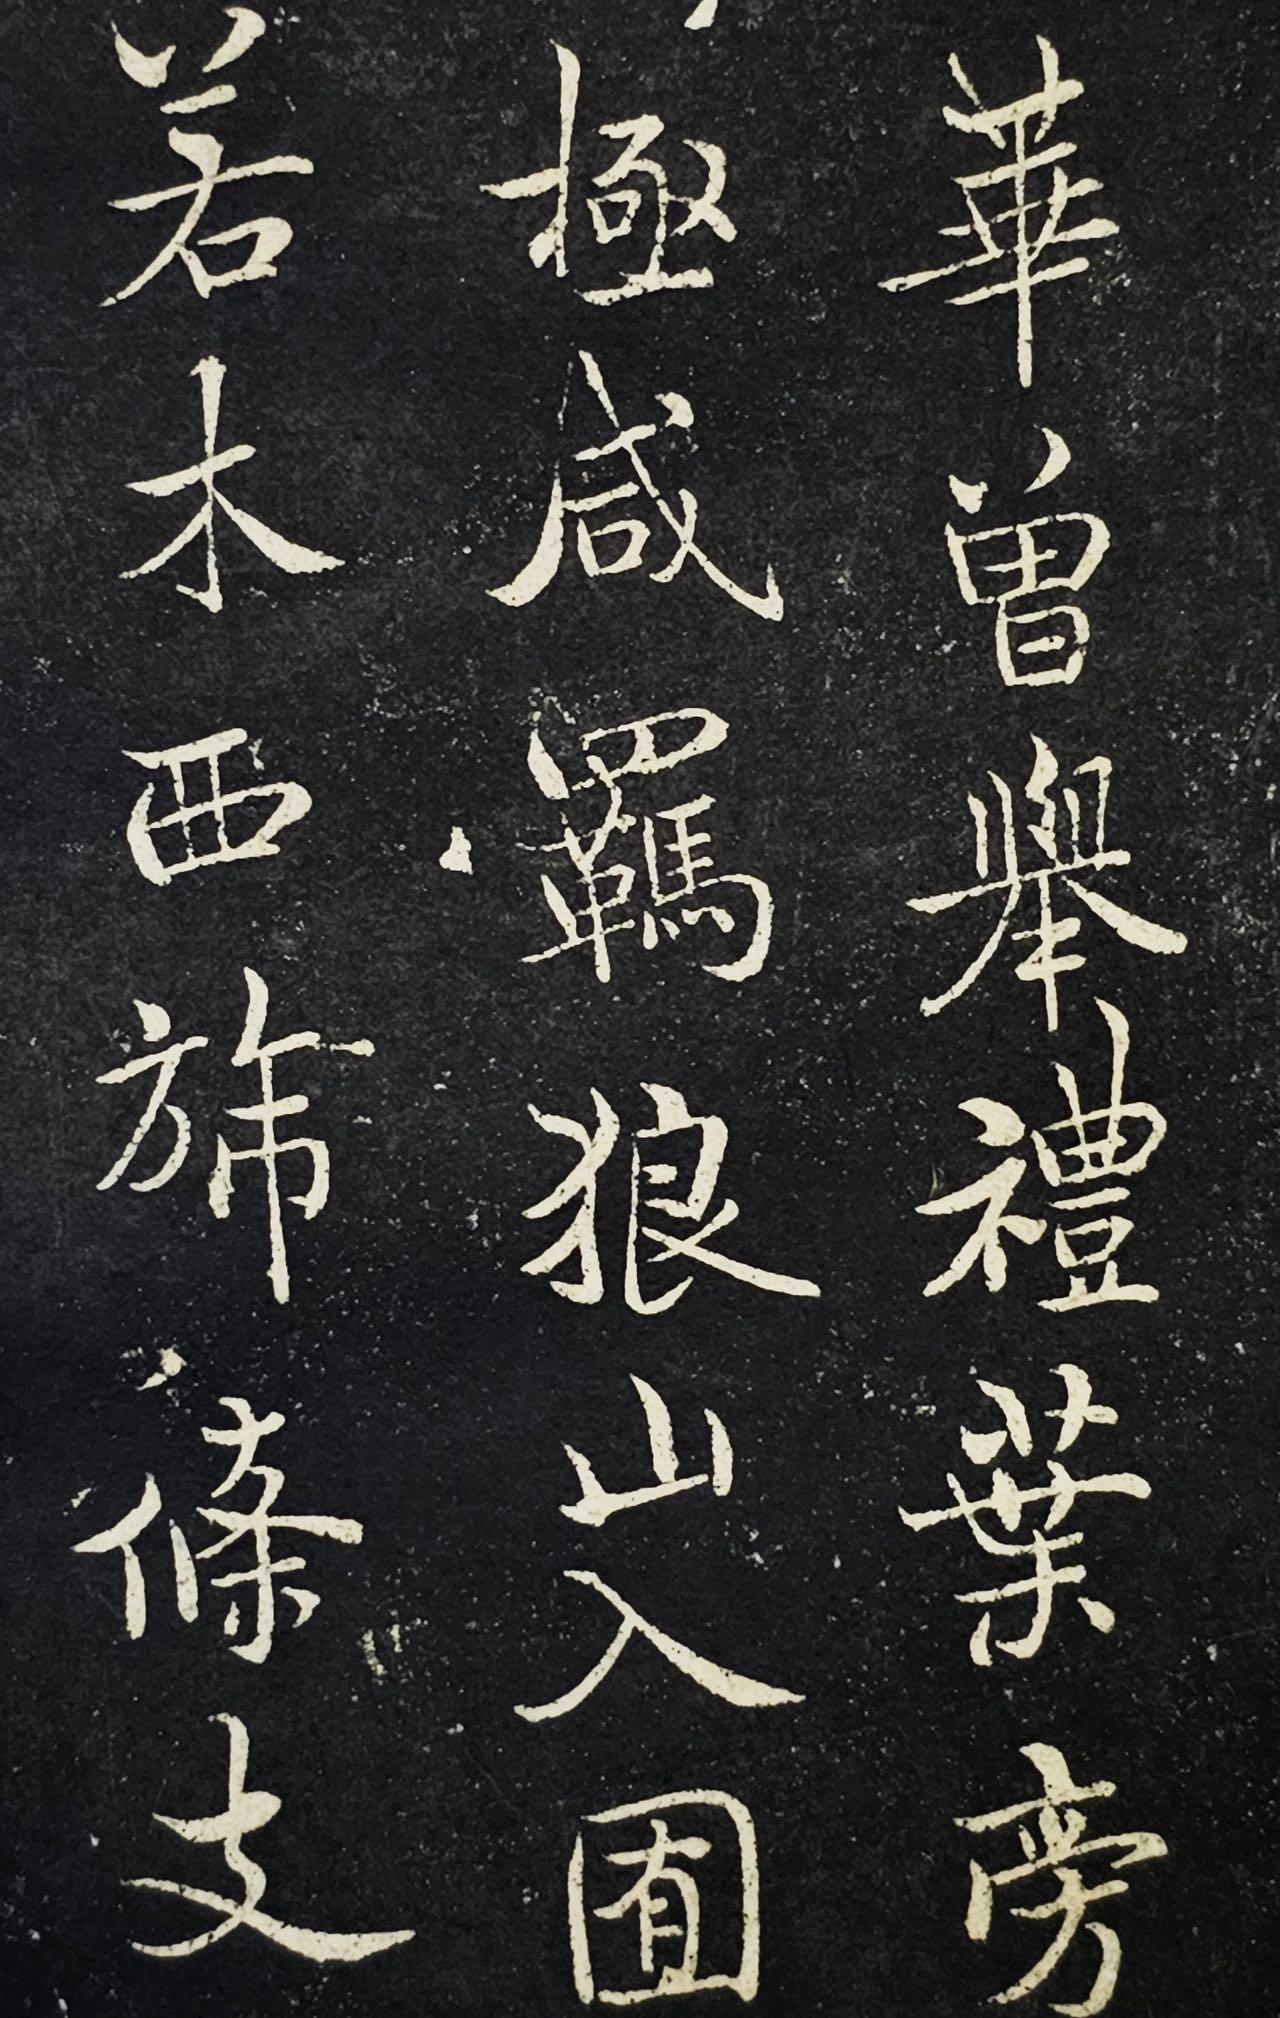 華曾舉禮葉旁
極咸羈狼山入囿
若木西旆條支